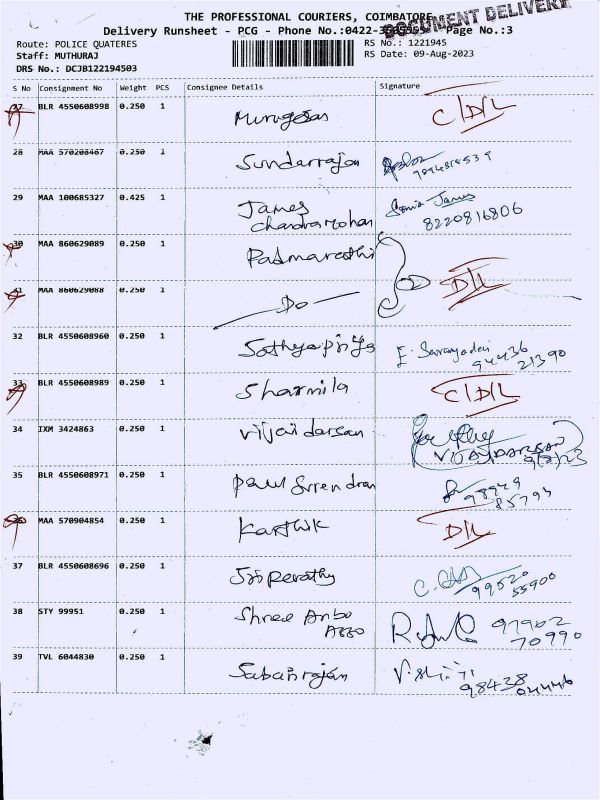 THE PROFESSIONAL COURIERS, COIMBATORE
DOCUMENT DELIVERY
Delivery Runsheet - PCG - Phone No.:0422- Page No.:3
Route: POLICE QUATERES
RS No.: 1221945
Staff: MUTHURAJ
RS Date: 09-Aug-2023
DRS No.: DCJB122194503
S No Consignment No Weight PCS Consignee Details Signature
27 BLR 4550608998 0.250 1 Murugesan C/D/L
28 MAA 570208467 0.250 1 Sundarrajan
29 MAA 100685327 0.425 1 James
Chandramohan
8220816806
30 MAA 860629089 0.250 1 Padmavathi
D/L
31 MAA 860629088 0.250 1 Do
32 BLR 4550608960 0.250 1 Sathyapriya
94436
21390
33 BLR 4550608989 0.250 1 Sharmila C/D/L
34 IXM 3424863 0.250 1 Vijai darsan
VIJAYDARSAN
9/8/23
35 BLR 4550608971 0.250 1 Paul Surendran
98949
85794
36 MAA 570904854 0.250 1 Karthik D/L
37 BLR 4550608696 0.250 1
99520
55900
38 STY 99951 0.250 1 Shree Anbu
97902
70990
39 TVL 6044830 0.250 1 Sabarirajan
98438
04446